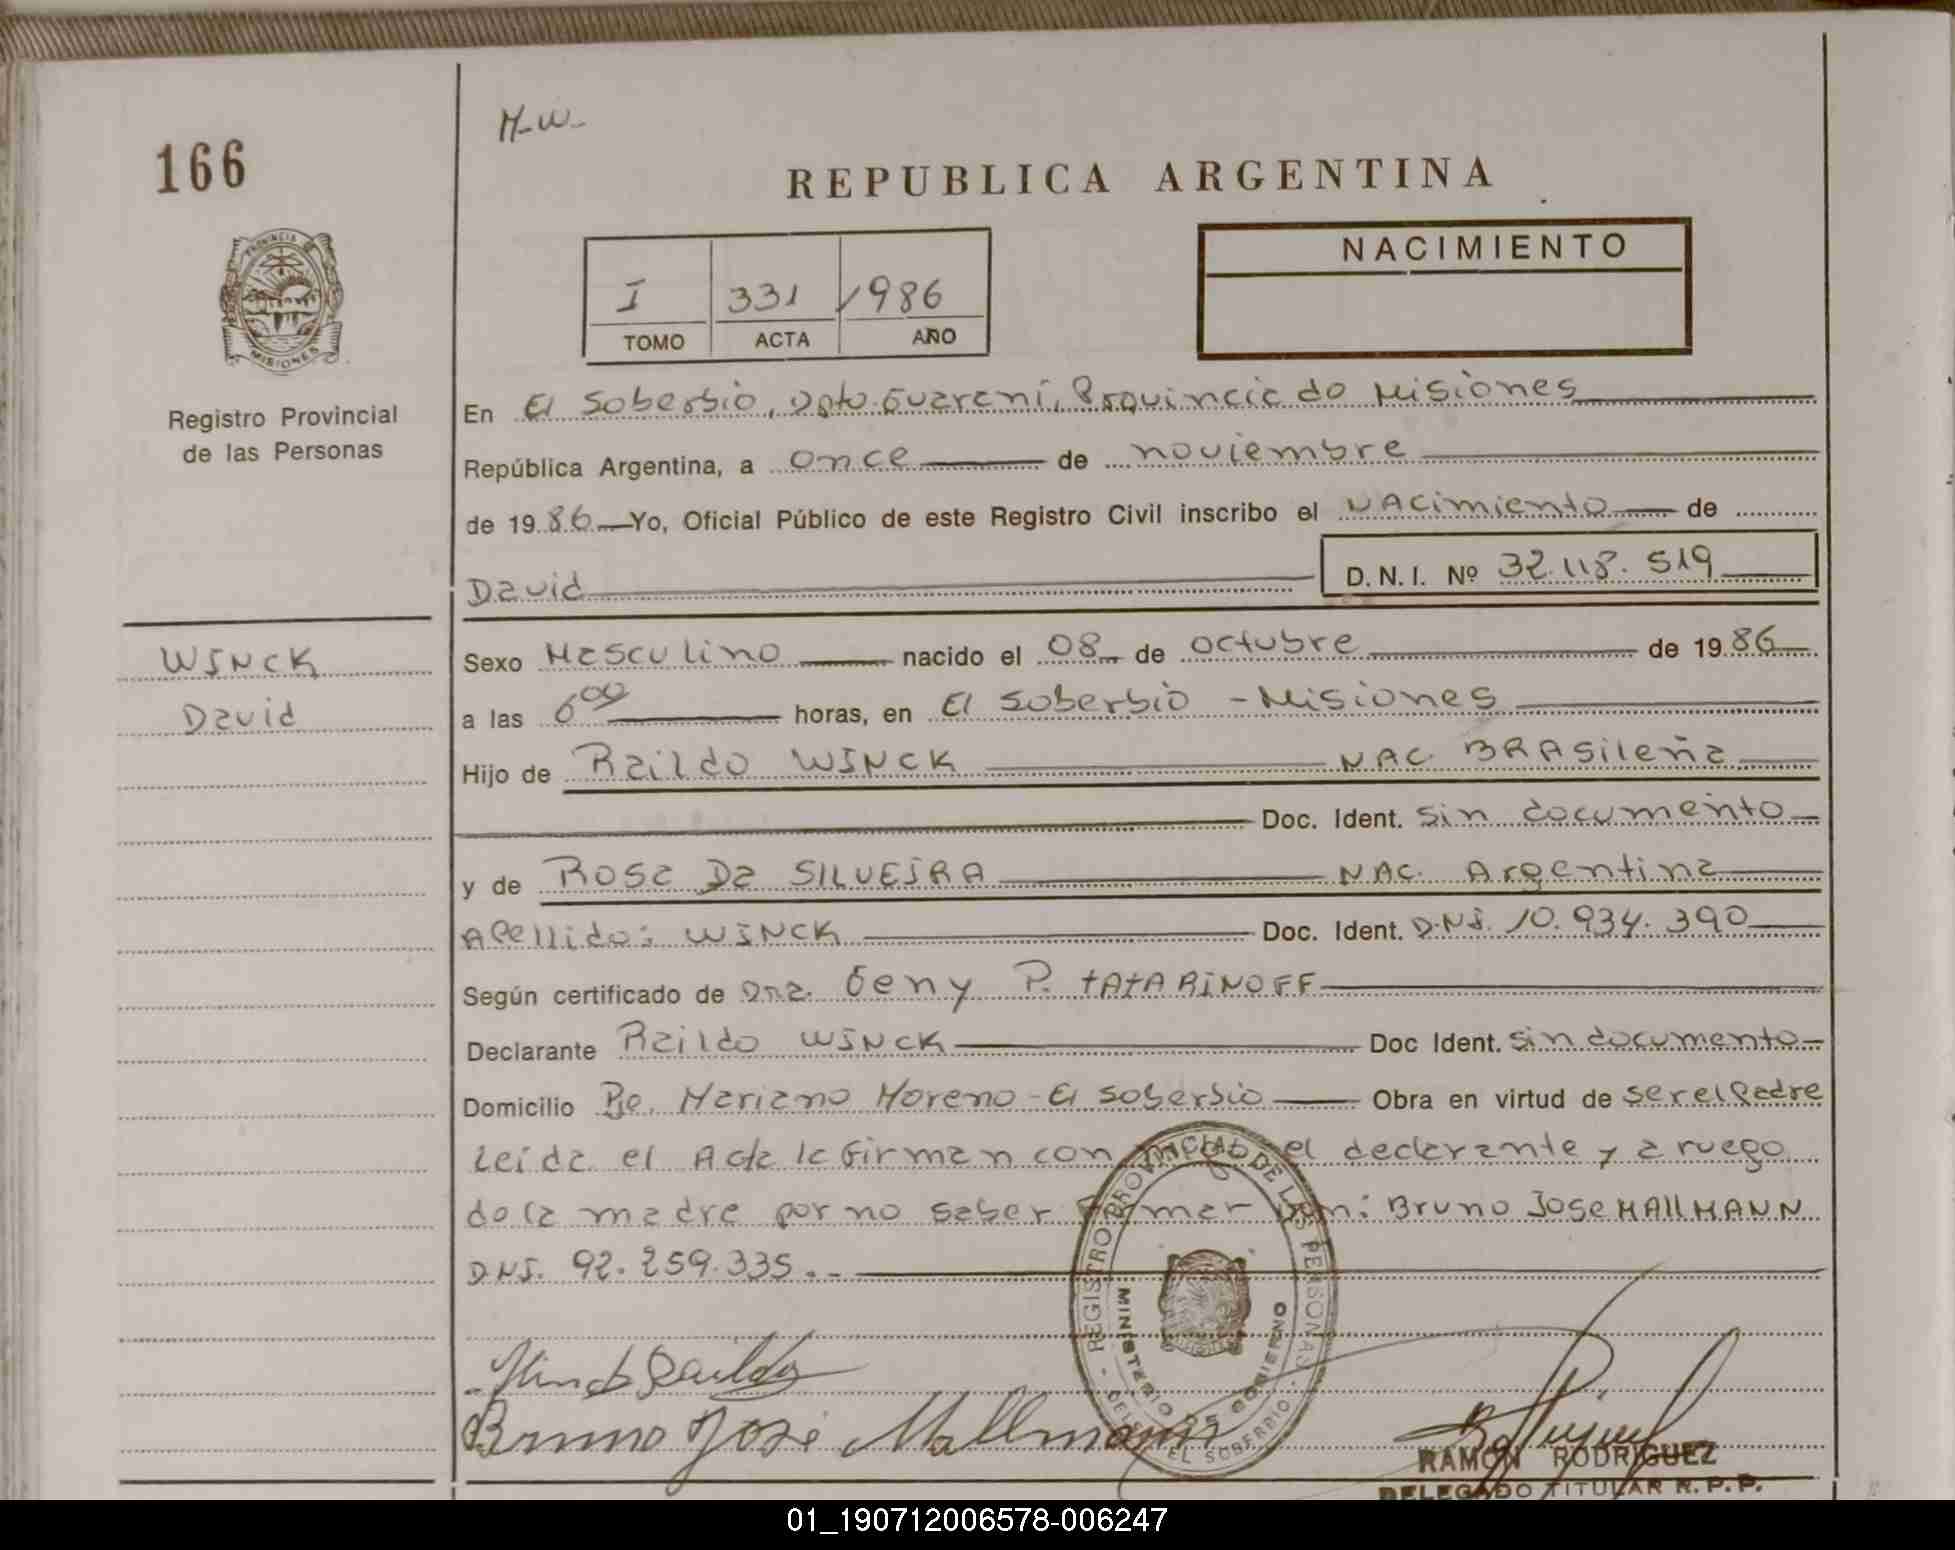 166
M-W-
REPUBLICA ARGENTINA
PROVINCIA DE
MISIONES
Registro Provincial
de las Personas
I 331 1986
TOMO ACTA AÑO
NACIMIENTO
En El Soberbio, Dpto Guaraní, Provincia de Misiones
República Argentina, a once de noviembre
de 1986 Yo, Oficial Público de este Registro Civil inscribo el NACimiento de
David D.N.I. Nº 32.118.519
WINCK
David
Sexo Masculino nacido el 08 de octubre de 1986
a las 6 00 horas, en El Soberbio - Misiones
Hijo de Raildo WINCK NAC. BRASileña
Doc. Ident. sin documento
y de ROSa Da SILVEIRA NAC. Argentina
Apellido: WINCK Doc. Ident. D.N.I. 10.934.390
Según certificado de Dra. Geny P. tAtARiNOFF
Declarante Raildo WINCK Doc Ident. sin documento
Domicilio Pje. Mariano Moreno - El Soberbio Obra en virtud de ser el Padre
Leida el Acta la firman con el declarante y a ruego
de la madre por no saber firmar Don: Bruno Jose MAllMANN
D.N.I. 92.259.335.-
REGISTRO PROVINCIAL DE LAS PERSONAS
MINISTERIO DE GOBIERNO
EL SOBERBIO
Winck Raildo
Bruno José Mallmann
RAMON RODRIGUEZ
DELEGADO TITULAR R.P.P.
01_190712006578-006247